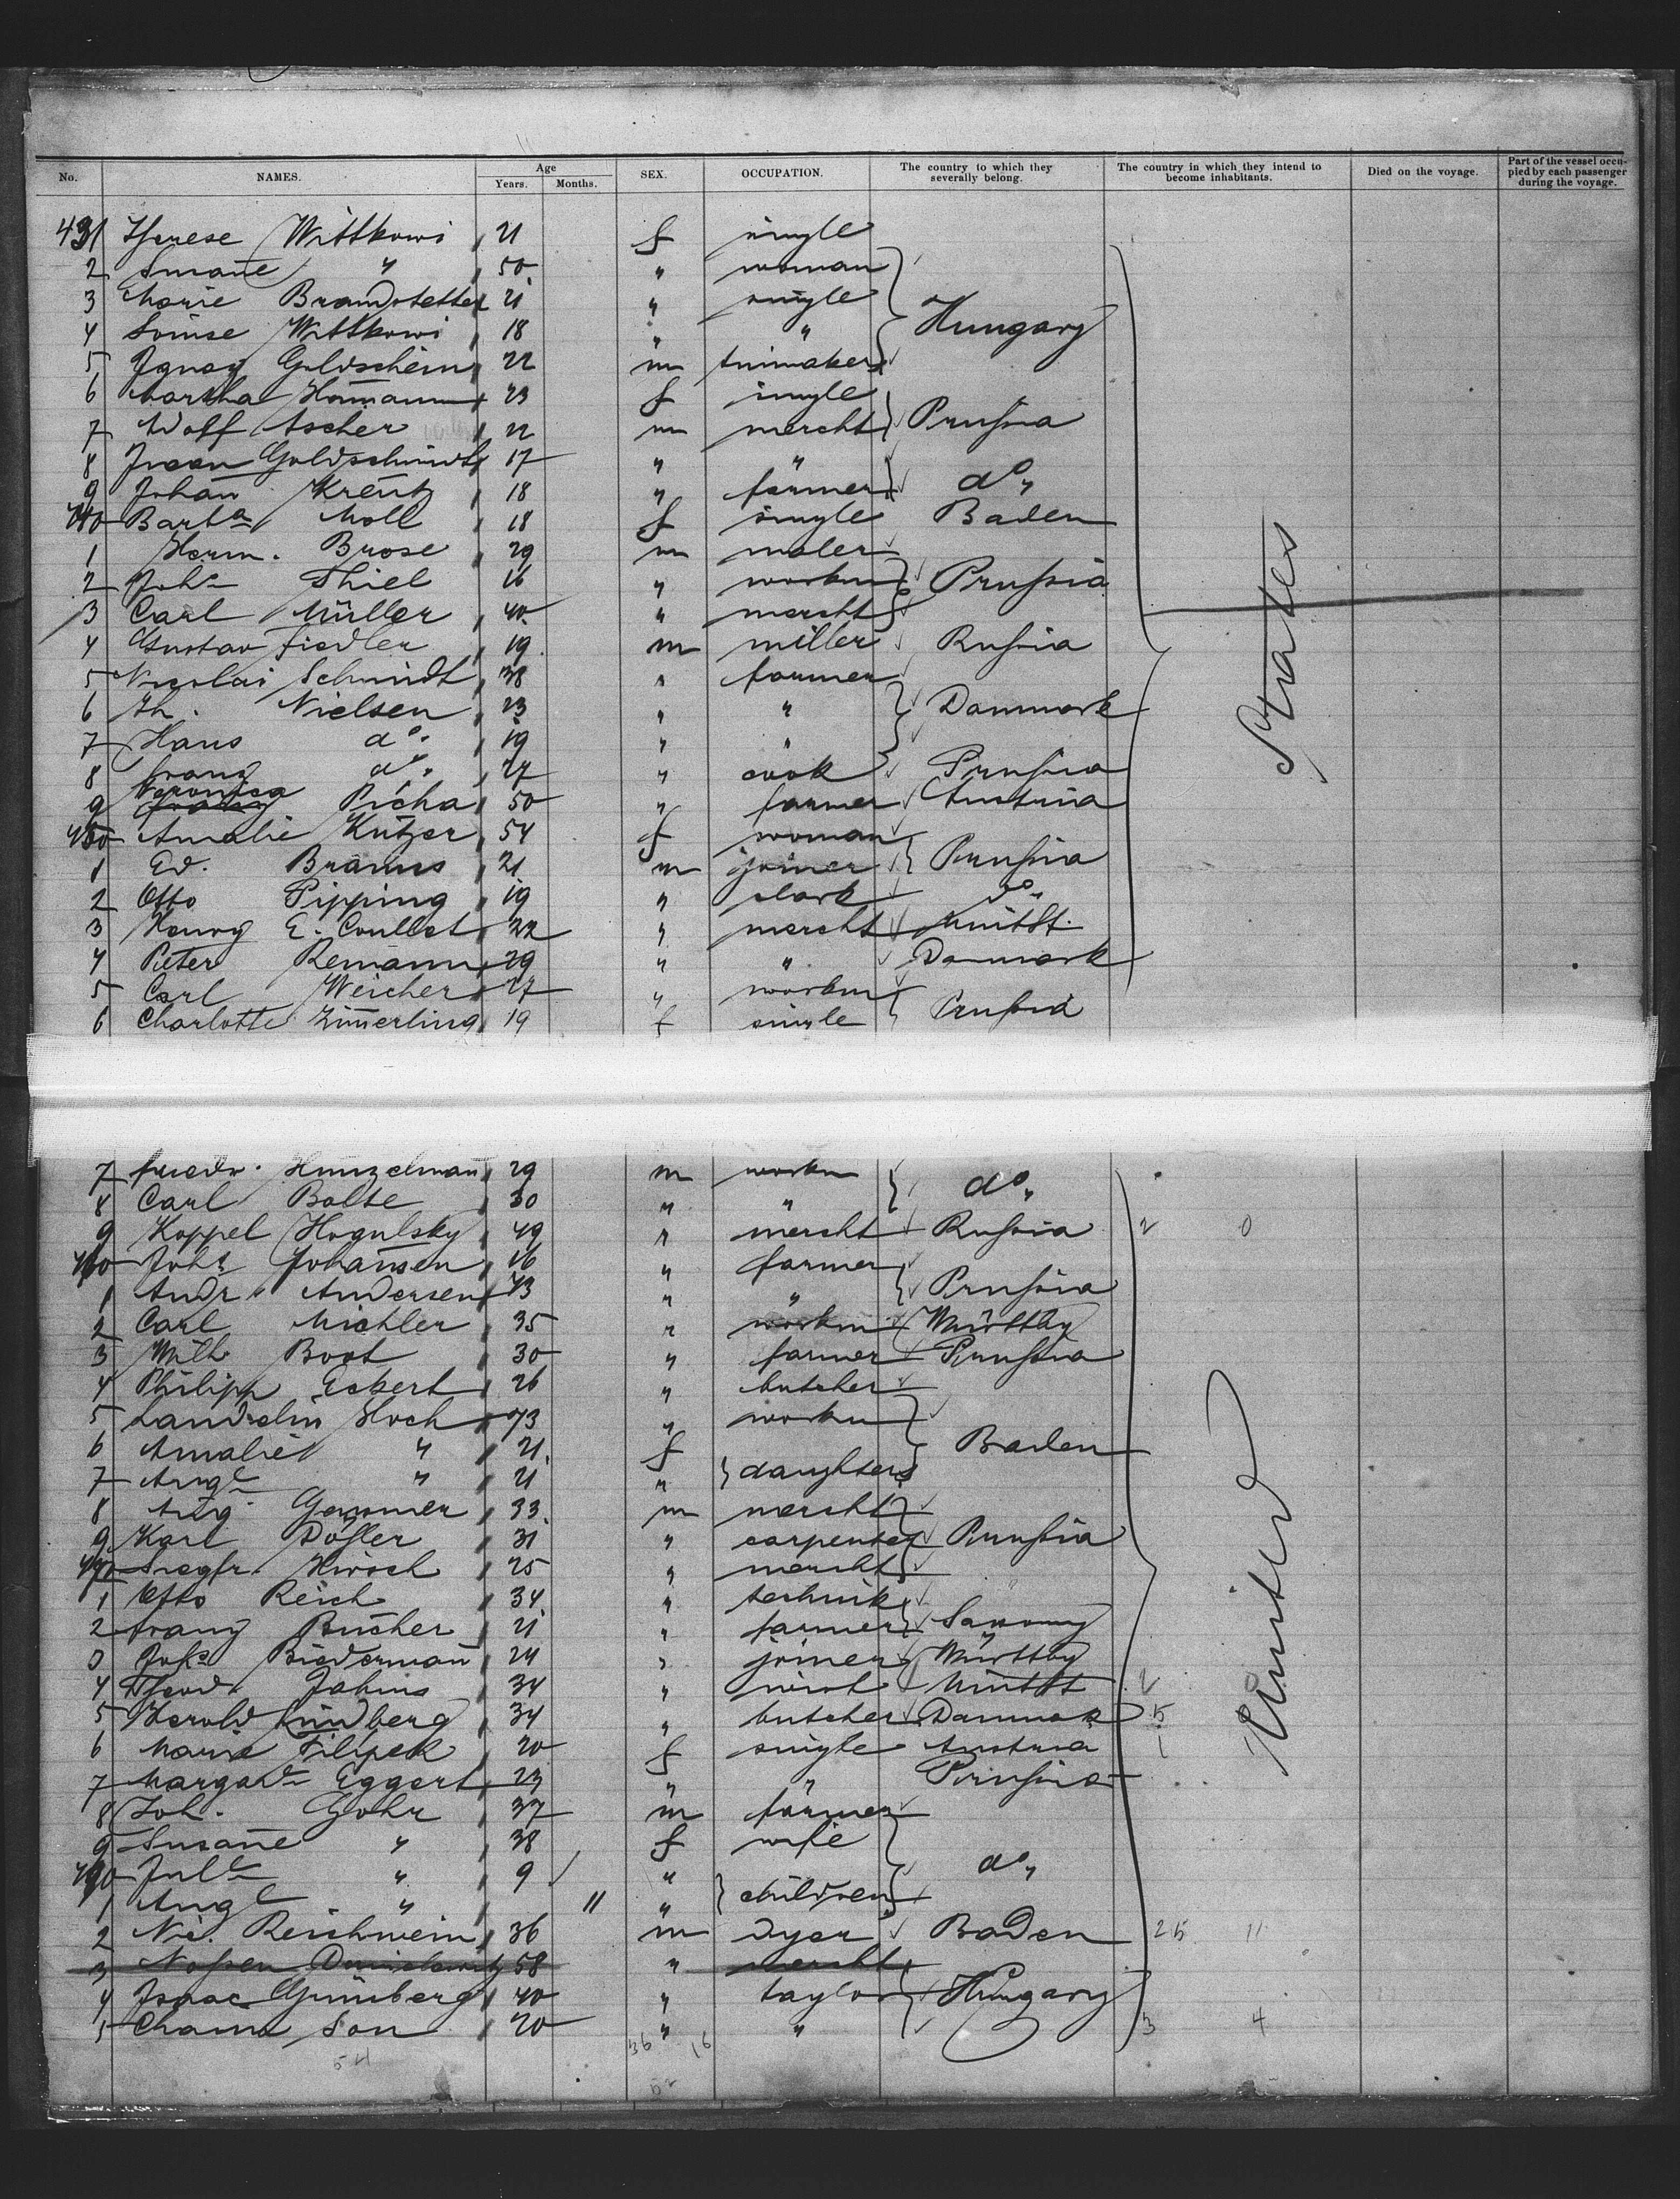 No. NAMES. Age Years. Months. SEX. OCCUPATION. The country to which they severally belong. The country in which they intend to become inhabitants. Died on the voyage. Part of the vessel occupied by each passenger during the voyage.
431 Therese Wittkowi 21 f single
2 Susane " 50 " woman
3 Marie Brandstetter 21 " single
4 Louise Wittkowi 18 " " Hungary
5 Ignaz Goldschein 22 m
6 Martha Hamann 23 f single
7 Adolf Ascher 22 m mercht Prußia
8 Goldschmidt 17 " "
9 Johan Kreutz 18 " farmer do
440 Barba Moll 18 f single Baden
1 Herm. Brose 29 m maler
2 Johs Thiel 16 " workm Prußia
3 Carl Müller 40 " mercht
4 Gustav Fiedler 19 m miller Rußia
5 Nicolai Schmidt 38 " farmer
6 Th. Nielsen 23 " " Danmark
7 Hans do 19 " "
8 Franz do 27 " cook Prußia
9 Veronica Picha 50 " farmer Austria
450 Amalie Kutzer 54 f woman
1 Ed. Brauns 21 m joiner Prußia
2 Otto Pipping 19 " clark do
3 Henry E. Coullet 22 " mercht UnitSt.
4 Peter Remann 29 " " Danmark
5 Carl Weicher 27 " workm
6 Charlotte Zimerling 19 f single Prußia
7 Friedr. Hunzelman 29 m workm
8 Carl Bolte 30 " " do
9 Koppel Hogulsky 49 " mercht Rußia 2 0
460 Johs Johansen 16 " farmer
1 Andr Andersen 43 " " Prußia
2 Carl Michler 35 " workm Württbg
3 Wilh Boot 30 " farmer Prußia
4 Philipp Eckert 26 " butcher
5 Landelin Hoch 43 " workm
6 Amalie " 21 f Baden
7 Auge " 21 " daughters
8 Aug. 33 m mercht
9 Karl Doßler 31 " carpenter Prußia
470 Siegfr. Hirsch 25 " mercht
1 Otto Reich 34 " technik
2 Franz Bucher 21 " farmer Saxony
3 Johs Biederman 24 " joiner Württbg
4 Theod. Jahns 34 " UnitSt
5 Harold Lindberg 34 " butcher Danmak
6 Marie Filipek 20 f single Austria 1
7 Margarde Eggert 23 " " Prußia
8 Joh. Gohr 37 m farmer
9 Susane " 38 f wife
480 Jule " 9 " do
1 Auge " 11 " children
2 Nic. Reichwein 36 m dyer Baden 25 11
3 58 " mercht
4 Isaac Grünberg 40 " taylor Hungary
5 Chaim Son 20 " " 3 4
54 36 16
52
United States